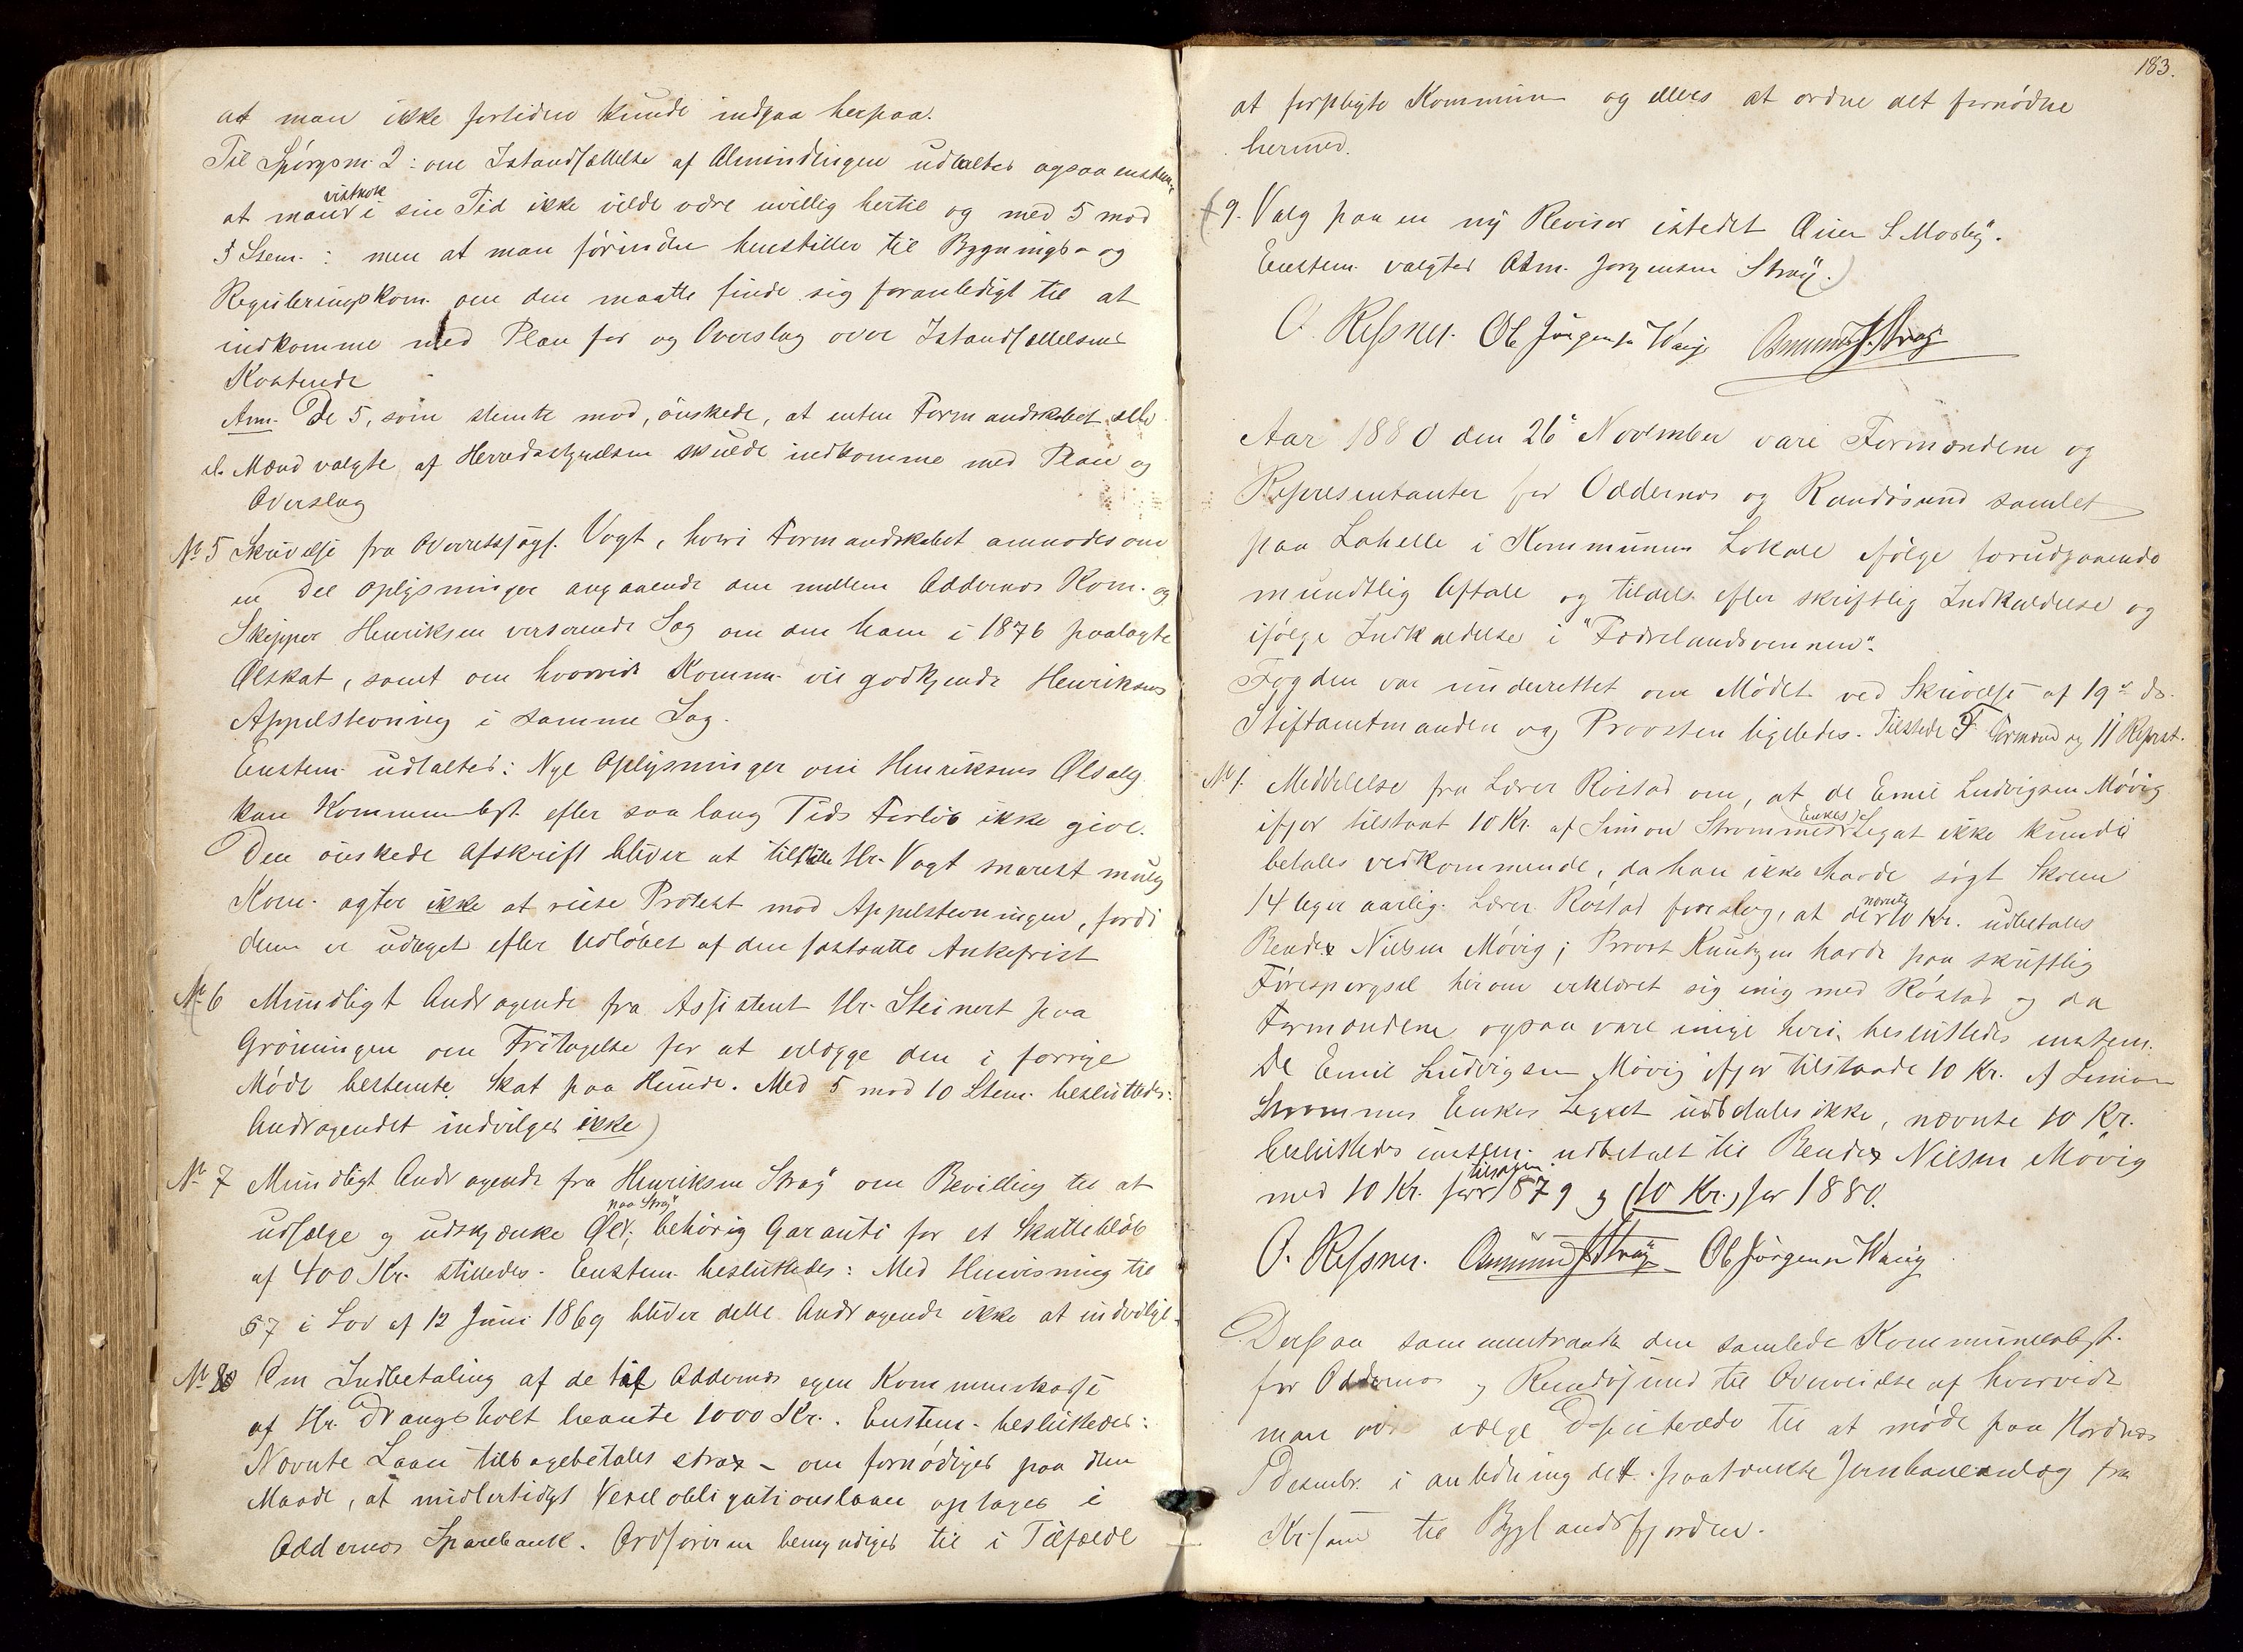 at man ikke fortiden kunde indgaa herpaa.
Til Spörgsm. 2: om Istandsættelse af Almindingen udtaltes ogsaa enstem.
at man vistnok i sin Tid ikke vilde være uvillig hertil og med 5 mod
5 Stem.: men at man förinden henstiller til Bygnings- og
Reguleringskom. om den maatte finde sig foranledigt til at
indkomme med Plan for og Overslag over Istandsættelsens
Kostende
Anm. De 5, som stemte mod, önskede, at enten Formandskabet selv
el. Mænd valgte af Herredsstyrelsen skulde indkomme med Plan og
Overslag
No 5 Skrivelse fra Overretssagf. Vogt, hvori Formandskabet anmodes om
en Del Oplysninger angaaende den mellem Oddernes Kom. og
Skipper Henriksen verserende Sag om den ham i 1876 paalagte
Ølskat, samt om hvorvidt Komm. vil godkjende Henriksens
Appelstevning i samme Sag.
Enstem. udtaltes: Nye Oplysninger om Henriksens Ølsalg
kan Kommunebst. efter saa lang Tids Forløb ikke give.
Den önskede Afskrift bliver at tilstille Hr. Vogt snarest mulig
Kom. agter ikke at reise Protest mod Appelstevningen, fordi
den er udtaget efter Udløbet af den fastsatte Ankefrist
No 6 Mundligt Andragende fra Assistent Hr. Steinert paa
Gröningen om Fritagelse for at erlægge den i forrige
Möde bestemte Skat paa Hunde. Med 5 mod 10 Stem. besluttedes:
Andragendet indvilges ikke)
No 7 Mundligt Andragende fra Henriksen Stray om Bevilling til at
udsælge og udskjænke Øl paa Stray; behörig Garanti for et Skattebelöb
af 400 Kr. stilledes. Enstem. besluttedes: Med Henvisning til
§ 7 i Lov af 12 Juni 1869 bliver dette Andragende ikke at indvilge.
No 8 Om Indbetaling af de til Oddernes egen Kommunekasse
af Hr. Drangsholt laante 1000 Kr. Enstem. besluttedes:
Nævnte Laan tilbagebetales strax - om fornödiges paa den
Maade, at midlertidigt Vexelobligationslaan optages i
Oddernes Sparebank. Ordföreren bemyndiges til i Tilfælde
183.
at forpligte Kommunen og ellers at ordne det fornödne
hermed.
(9. Valg paa en ny Revisor istedet Einer S. Mosby.
Enstem. valgtes Asm. Jörgensen Stray.)
O. Ressner. Ole Jörgensen Waage Asmund J. Stray
Aar 1880 den 26 November vare Formændene og
Representanter for Oddernes og Randösund samlet
paa Lahelle i Kommunens Lokale ifölge forudgaaende
mundtlig Aftale og tildels efter skriftlig Indkaldelse og
ifölge Indkaldelse i "Fædrelandsvennen".
Fogden var underrettet om Mödet ved Skrivelse af 19de ds.
Stiftamtmanden og Provsten ligeledes. Tilstede 7 Formænd og 11 Reprst.
No 1. Meddelelse fra Lærer Röstad om, at de Emil Ludvigsen Mövig
ifjor tilstaaet 10 Kr. af Simon Strømmes Enkes Legat ikke kunde
betales vedkommende, da han ikke havde sögt Skolen
14 Uger aarlig. Lærer Röstad foreslog, at de nævnte 10 Kr. udbetales
Bendix Nielsen Mövig; Provst Knutzen havde paa skriftlig
Förespörgsel herom erklæret sig enig med Röstad og da
Formændene ogsaa vare enige heri, besluttedes enstem.
De Emil Ludvigsen Mövig ifjor tilstaaede 10 Kr. af Simon
Strømmes Enkes Legat udbetales ikke, nævnte 10 Kr.
besluttedes enstem. udbetalt til Bendix Nielsen Mövig
med 10 Kr. for 1879 og (10 Kr.) for 1880.
O. Ressner. Asmund J. Stray Ole Jörgensen Waage
Derpaa sammentraadte den samlede Kommunebst.
for Oddernes og Randösund til Overveielse af hvorvidt
man vil vælge Deputerede til at möde paa Hordnes
Desembr. i anledning det paatænkte Jernbaneanlæg fra
Kr.sand til Byglandsfjorden.